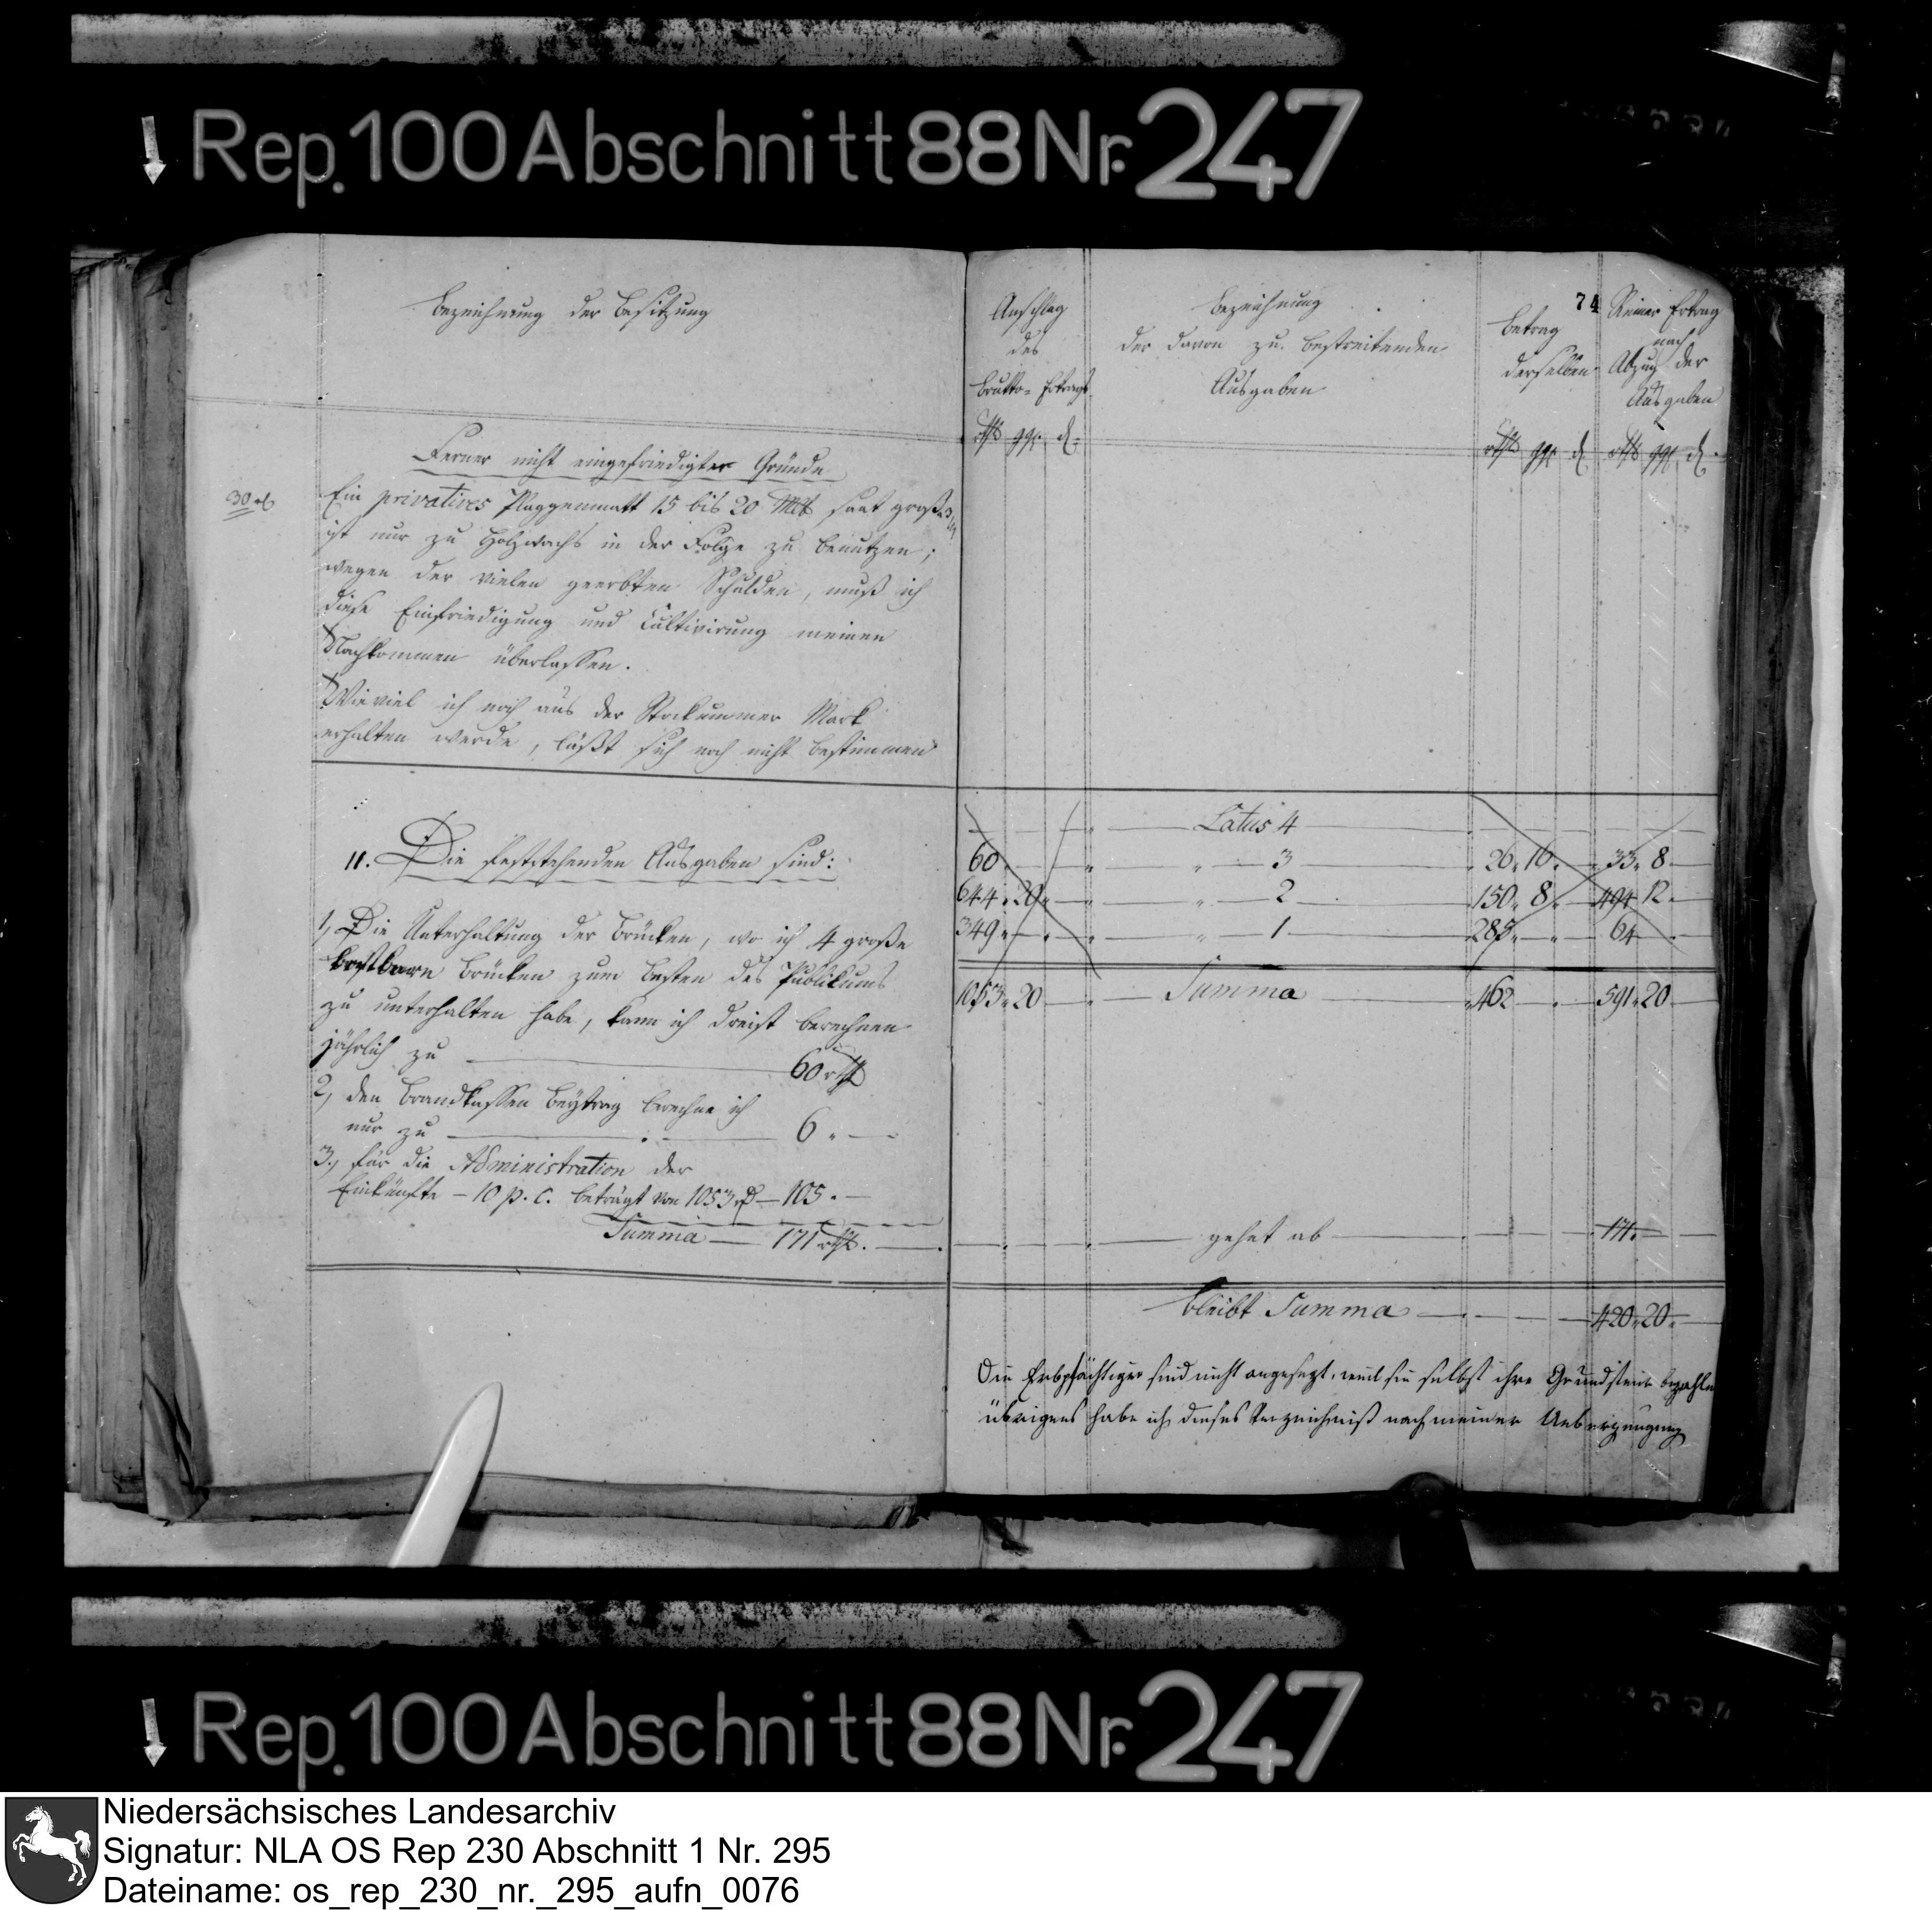 Rep. 100 Abschnitt 88 Nr. 247
Bezeichnung der Besitzung
Ferner nicht eingefriedigter Gründe
Ein privatives Plaggenmatt 15 bis 20 saat groß
ist nur zu Holzwachs in der Folge zu benutzen;
wegen der vielen geerbten Schulden, muß ich
diese Einfriedigung und Cultivirung meinen
Nachkommen überlassen.
Wieviel ich noch aus der Stockummer Mark
erhalten werde, läßt sich noch nicht bestimmen
11. Die feststehenden Ausgaben sind:
1, Die Unterhaltung der Brücken, wo ich 4 große
kostbare Brücken zum Besten des Publikums
zu unterhalten habe, kann ich dreist berechnen
jährlich zu — 60 rthl
2, den Brandkassen Beytrag berechne ich
nur zu — 6 " —
3., für die Administration der
Einkünfte – 10 p. C. beträgt von 1053 — 105. —
Summa — 171 rthl. —
74
Anschlag
des
Brutto-Ertrags
rthl ggr d
Bezeichnung
der davon zu bestreitenden
Ausgaben
Betrag
derselben
rthl ggr d
Reiner Ertrag
nach
Abzug der
Ausgaben
rthl ggr d
Latus 4
60 " 3 26 " 16 33 " 8
644 " 20 " 2 150 " 8 494 12
349 " 1 285 " 64
1053 " 20 — Summa 462 591 " 20
gehet ab 171
bleibt Summa 420 " 20
Die Erbpächtiger sind nicht angesezt, weil sie selbst ihre Grundsteuer bezahlen
übrigens habe ich dieses Verzeichniß nach meiner Ueberzeugung
Rep. 100 Abschnitt 88 Nr. 247
Niedersächsisches Landesarchiv
Signatur: NLA OS Rep 230 Abschnitt 1 Nr. 295
Dateiname: os_rep_230_nr._295_aufn_0076